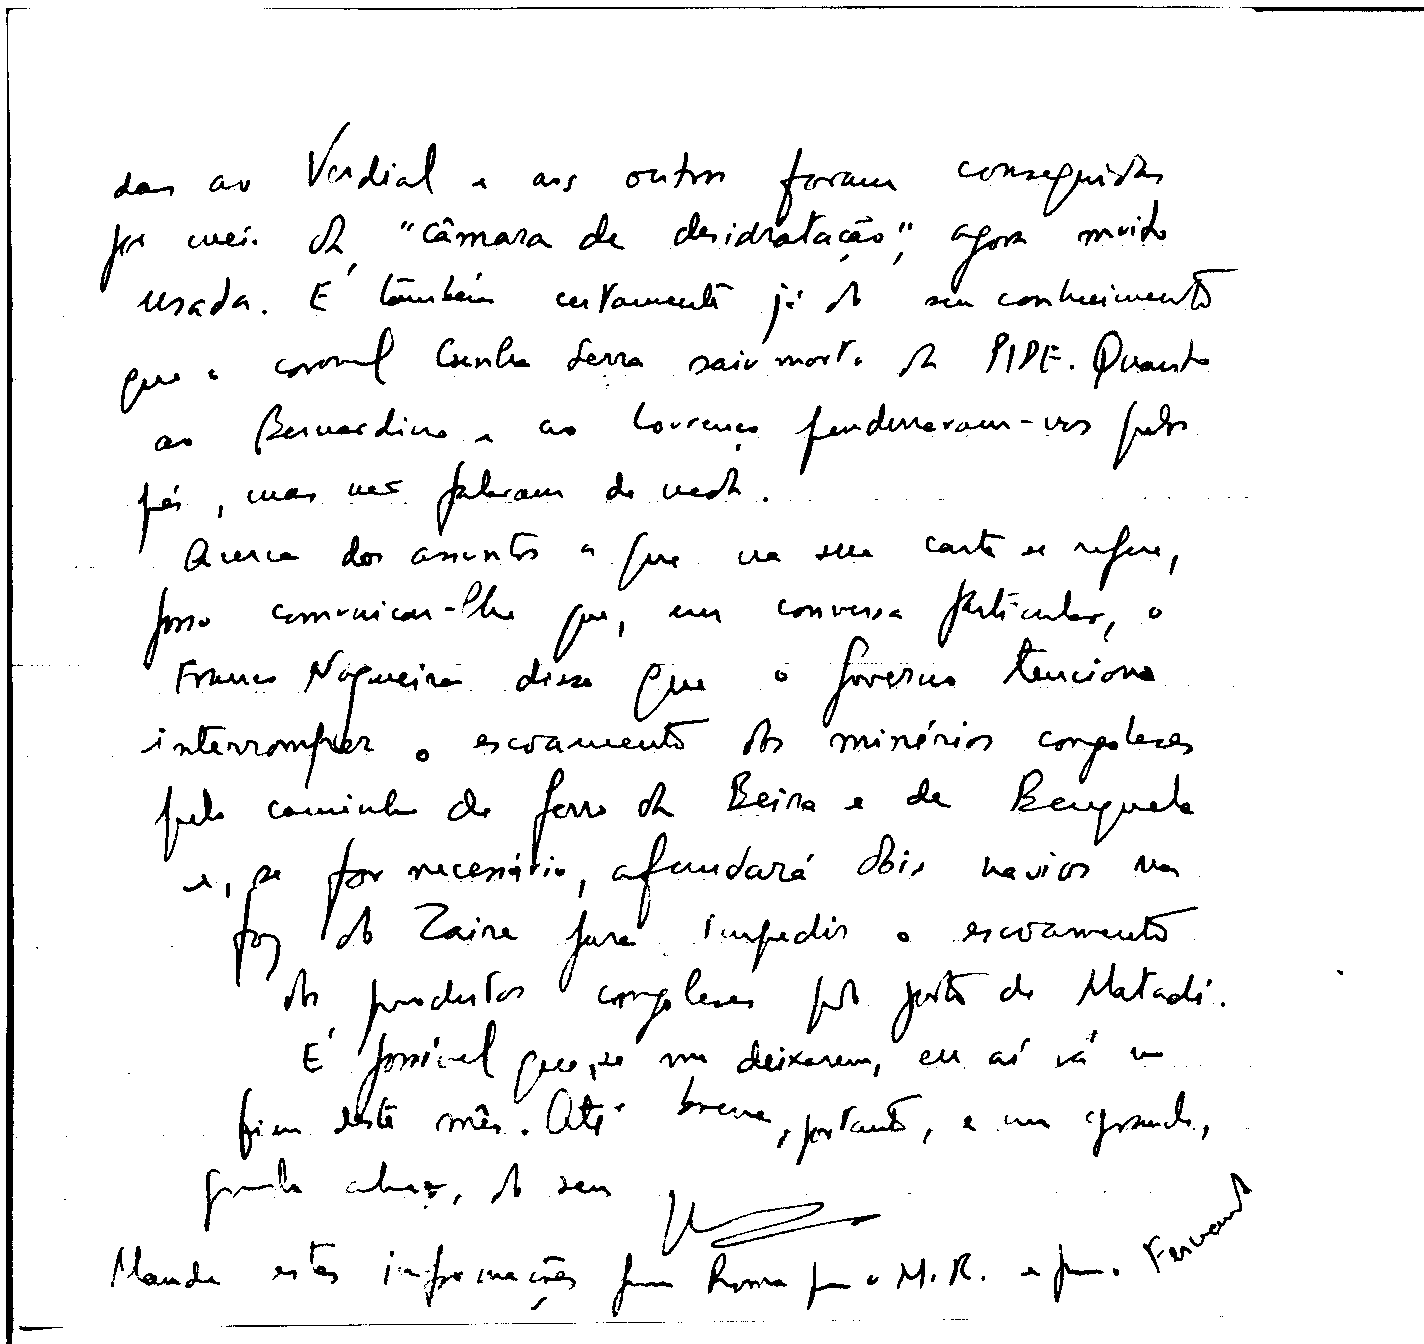 das ao Verdial e aos outros foram conseguidas
por meio da "câmara de desidratação", agora muito
usada. É também certamente já do seu conhecimento
que o coronel Cunha Serra saiu morto da PIDE. Quanto
ao Bernardino e ao Lourenço penduraram-nos pelos
pés, mas não falaram de nada.
Acerca dos assuntos a que na sua carta se refere,
posso comunicar-lhe que, em conversa particular, o
Franco Nogueira disse que o Governo tenciona
interromper o escoamento dos minérios congoleses
pelo caminho de ferro da Beira e de Benguela
e, se for necessário, afundará dois navios na
foz do Zaire para impedir o escoamento
dos produtos congoleses pelo porto de Matadi.
É possível que, se me deixarem, eu aí vá no
fim deste mês. Até breve, portanto, e um grande,
grande abraço, do seu
Manda estas informações para Roma para o M.R. e para o Fernando